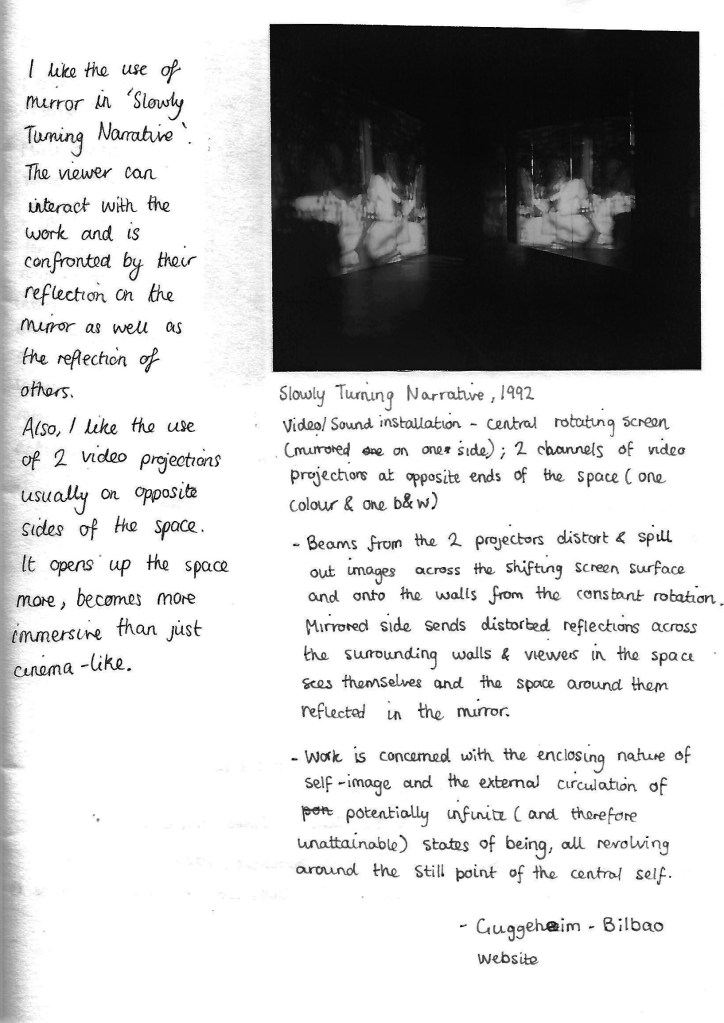 I like the use of
mirror in 'Slowly
Turning Narrative'.
The viewer can
interact with the
work and is
confronted by their
reflection on the
mirror as well as
the reflection of
others.
Also, I like the use
of 2 video projections
usually on opposite
sides of the space.
It opens up the space
more, becomes more
immersive than just
cinema-like.
Slowly Turning Narrative, 1992
Video/Sound installation - central rotating screen
(mirrored one on one side); 2 channels of video
projections at opposite ends of the space (one
colour & one b&w)
- Beams from the 2 projectors distort & spill
out images across the shifting screen surface
and onto the walls from the constant rotation.
Mirrored side sends distorted reflections across
the surrounding walls & viewers in the space
sees themselves and the space around them
reflected in the mirror.
- Work is concerned with the enclosing nature of
self-image and the external circulation of
pon potentially infinite (and therefore
unattainable) states of being, all revolving
around the still point of the central self.
- Guggeheim - Bilbao
website